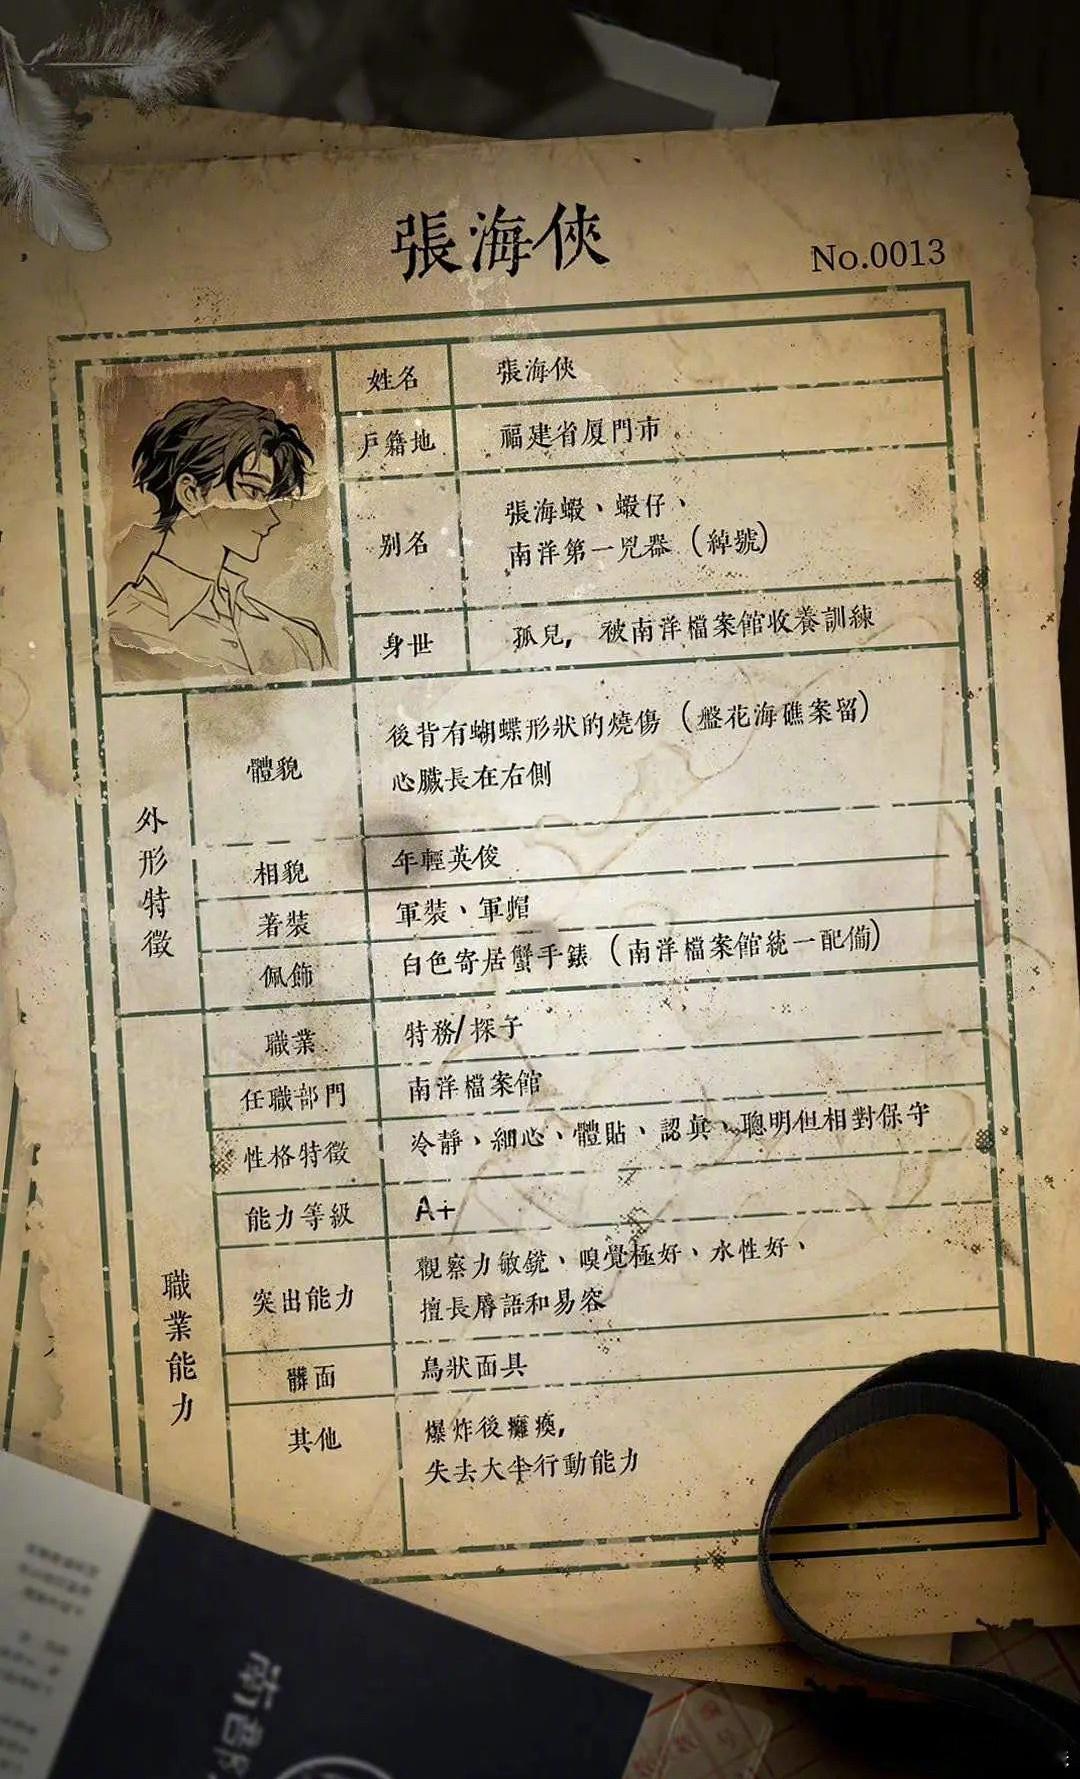 張海俠
No.0013
姓名
張海俠
戶籍地
福建省厦門市
别名
張海蝦、蝦仔、
南洋第一兇器（綽號）
身世
孤兒，被南洋檔案館收養訓練
外形特徵
體貌
後背有蝴蝶形狀的燒傷（盤花海礁案留）
心臟長在右側
相貌
年輕英俊
著裝
軍裝、軍帽
佩飾
白色寄居蟹手錶（南洋檔案館統一配備）
職業能力
職業
特務/探子
任職部門
南洋檔案館
性格特徵
冷靜、細心、體貼、認真、聰明但相對保守
能力等級
A+
突出能力
觀察力敏銳、嗅覺極好、水性好、
擅長脣語和易容
髒面
鳥狀面具
其他
爆炸後癱瘓，
失去大半行動能力